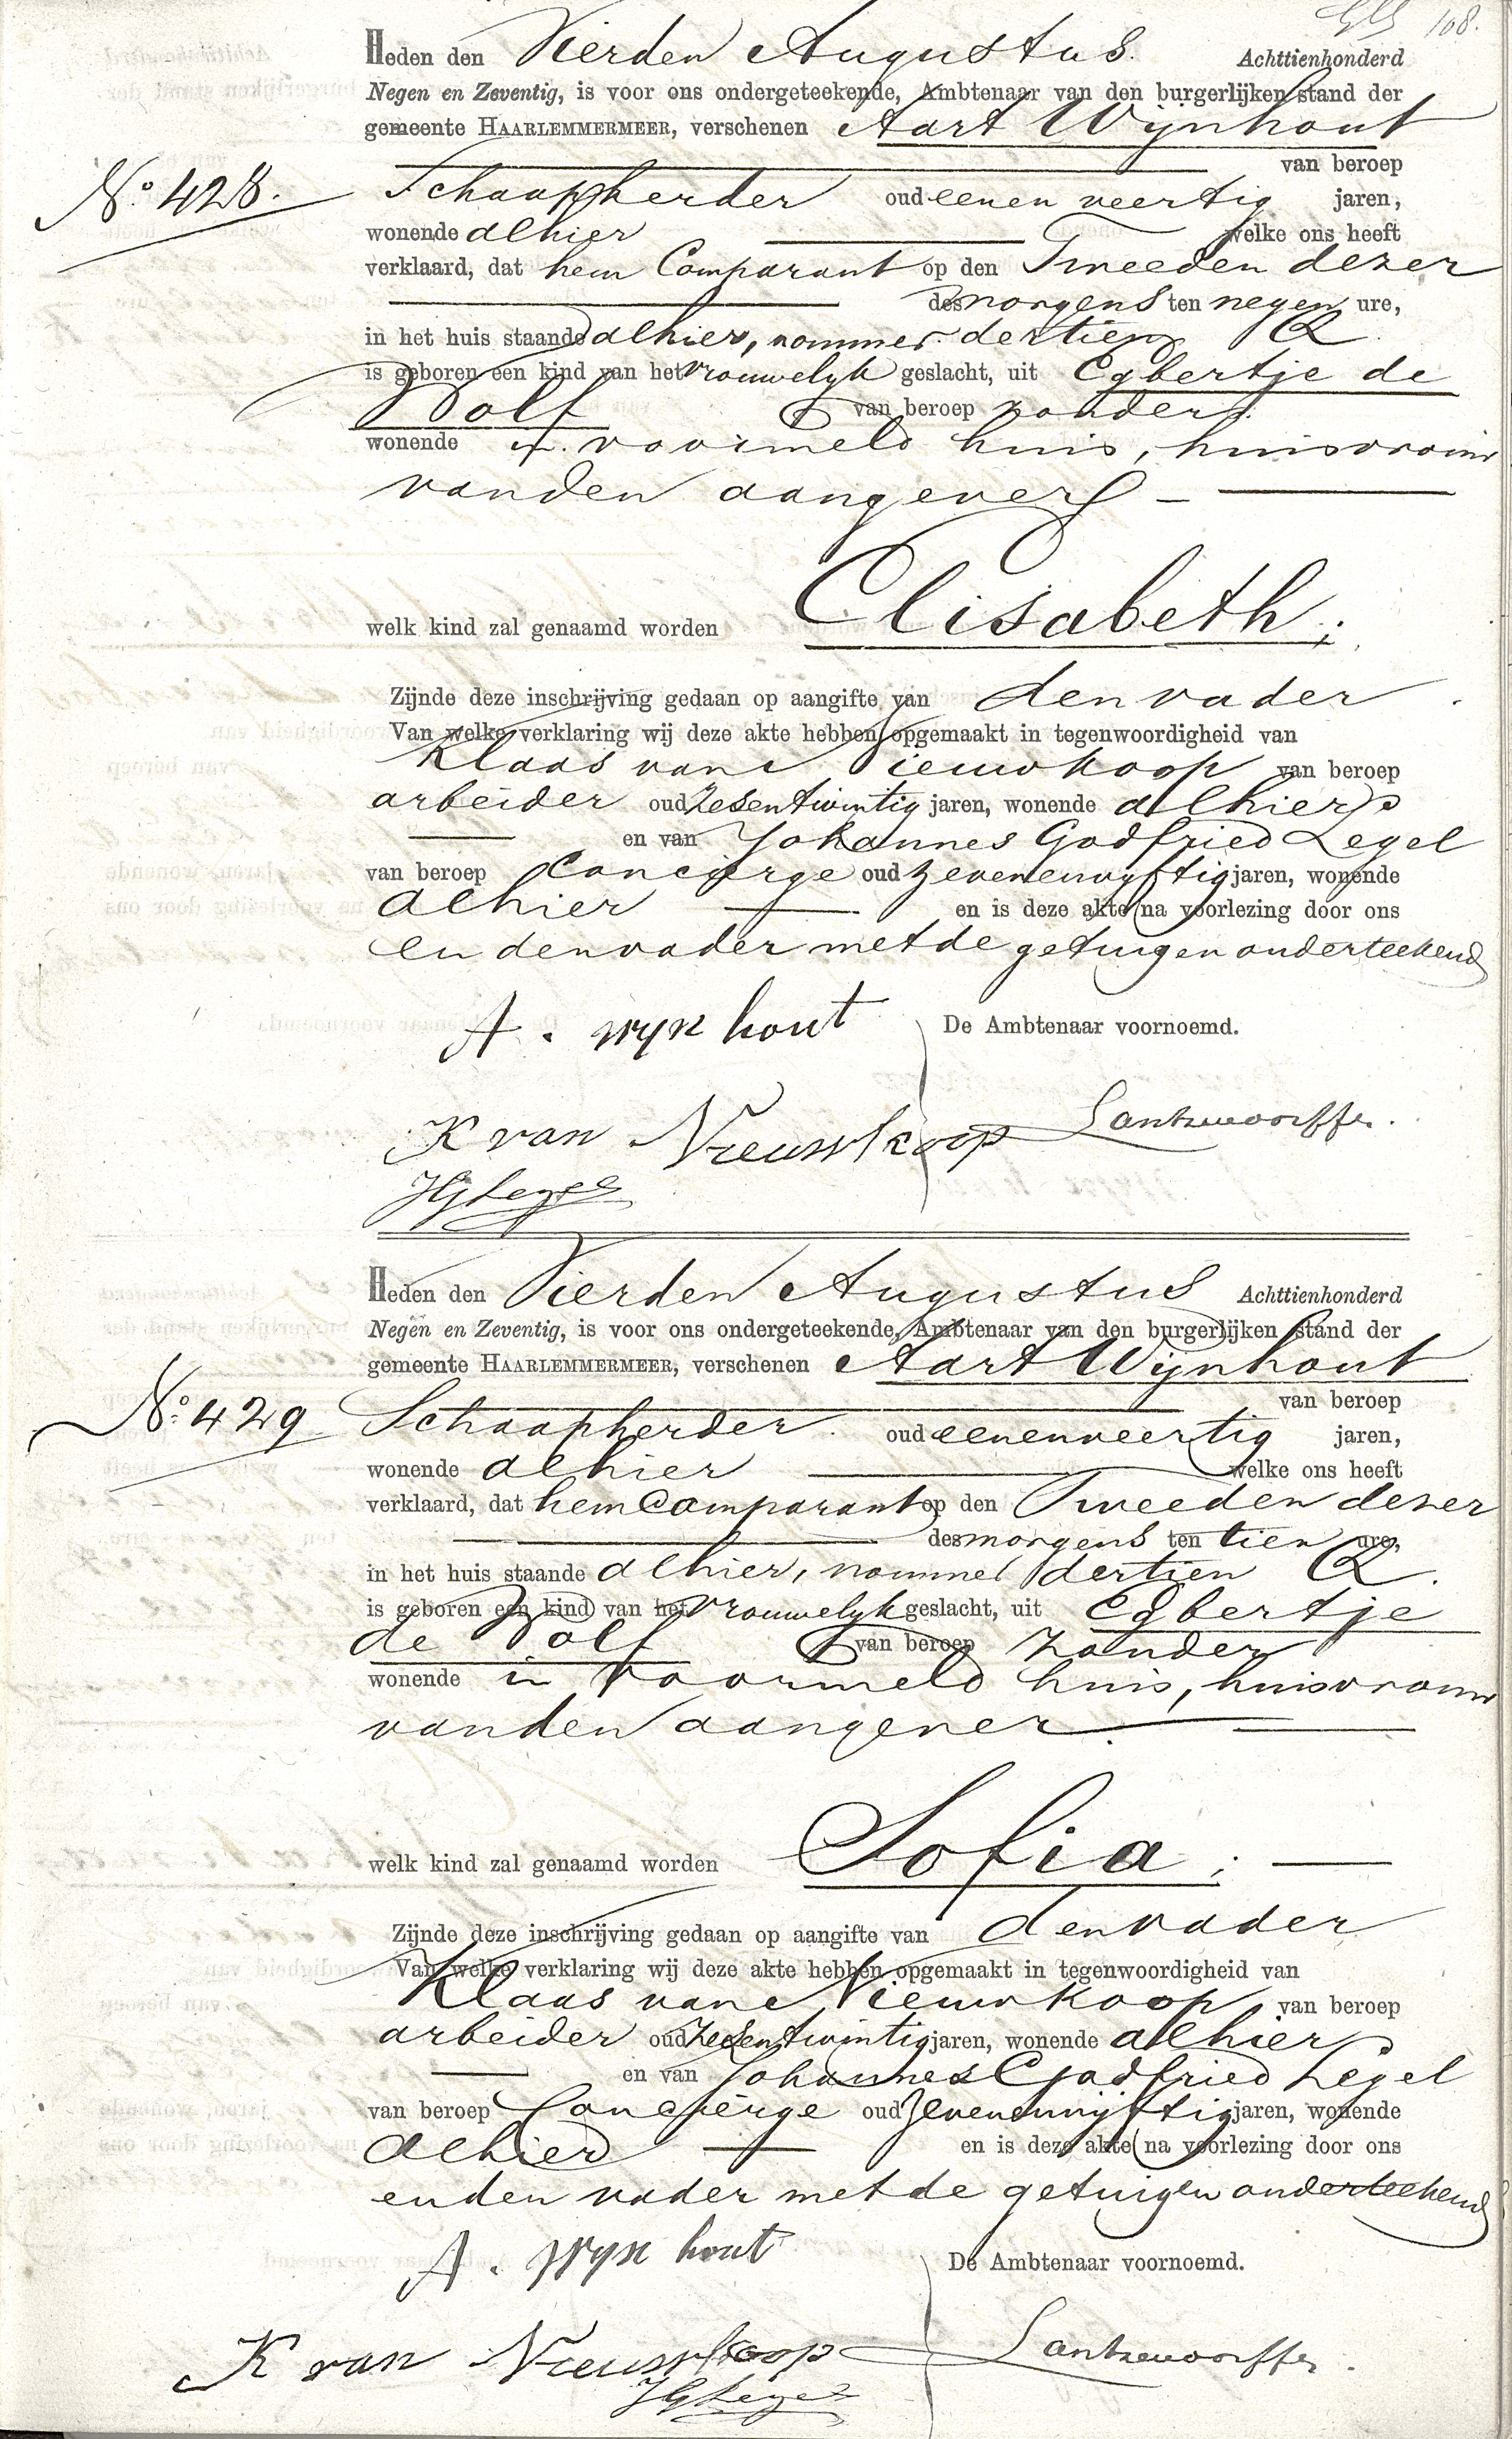 108.
Heden den Vierden Augustus. Achttienhonderd
Negen en Zeventig, is voor ons ondergeteekende, Ambtenaar van den burgerlijken stand der
gemeente HAARLEMMERMEER, verschenen Aart Wijnhout
van beroep
No. 428. Schaapherder oud eenen veertig jaren,
wonende alhier welke ons heeft
verklaard, dat hem Comparant op den Tweeden dezer
des morgens ten negen ure,
in het huis staande alhier, nommer dertien Q
is geboren een kind van het vrouwelyk geslacht, uit Egbertje de
Wolf van beroep zonder
wonende in voormeld huis, huisvrouw
van den aangever
welk kind zal genaamd worden Elisabeth;
Zijnde deze inschrijving gedaan op aangifte van den vader
Van welke verklaring wij deze akte hebben opgemaakt in tegenwoordigheid van
Klaas van Nieuwkoop van beroep
arbeider oud zesentwintig jaren, wonende alhier
en van Johannes Godfried Legel
van beroep Concierge oud zevenenvyftig jaren, wonende
alhier en is deze akte na voorlezing door ons
en den vader met de getuigen onderteekend
A. wyn hout De Ambtenaar voornoemd.
K van Nieuwkoop
JGLegel
Heden den Vierden Augustus Achttienhonderd
Negen en Zeventig, is voor ons ondergeteekende, Ambtenaar van den burgerlijken stand der
gemeente HAARLEMMERMEER, verschenen Aart Wijnhout
van beroep
No. 429 Schaapherder oud eenenveertig jaren,
wonende alhier welke ons heeft
verklaard, dat hem Comparant op den Tweeden dezer
des morgens ten tien ure,
in het huis staande alhier, nommer dertien Q.
is geboren een kind van het vrouwelyk geslacht, uit Egbertje
de Wolf van beroep zonder
wonende in voormeld huis, huisvrouw
van den aangever.
welk kind zal genaamd worden Sofia;
Zijnde deze inschrijving gedaan op aangifte van den vader
Van welke verklaring wij deze akte hebben opgemaakt in tegenwoordigheid van
Klaas van Nieuwkoop van beroep
arbeider oud zesentwintig jaren, wonende alhier
en van Johannes Godfried Legel
van beroep Concierge oud zevenenvijftig jaren, wonende
alhier en is deze akte na voorlezing door ons
en den vader met de getuigen onderteekend
A. Wyn hout De Ambtenaar voornoemd.
K van Nieuwkoop
JGLegel